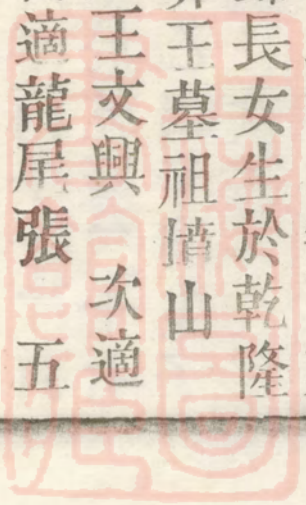 長女生於乾隆
王墓祖墳山
王文興　次適
適龍尾張　五